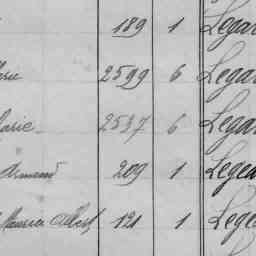 189 1 Legar
2599 6 Legar
Marie 2537 6 Legar
Armand 209 1 Leged
Maurice Albert 121 1 Lege